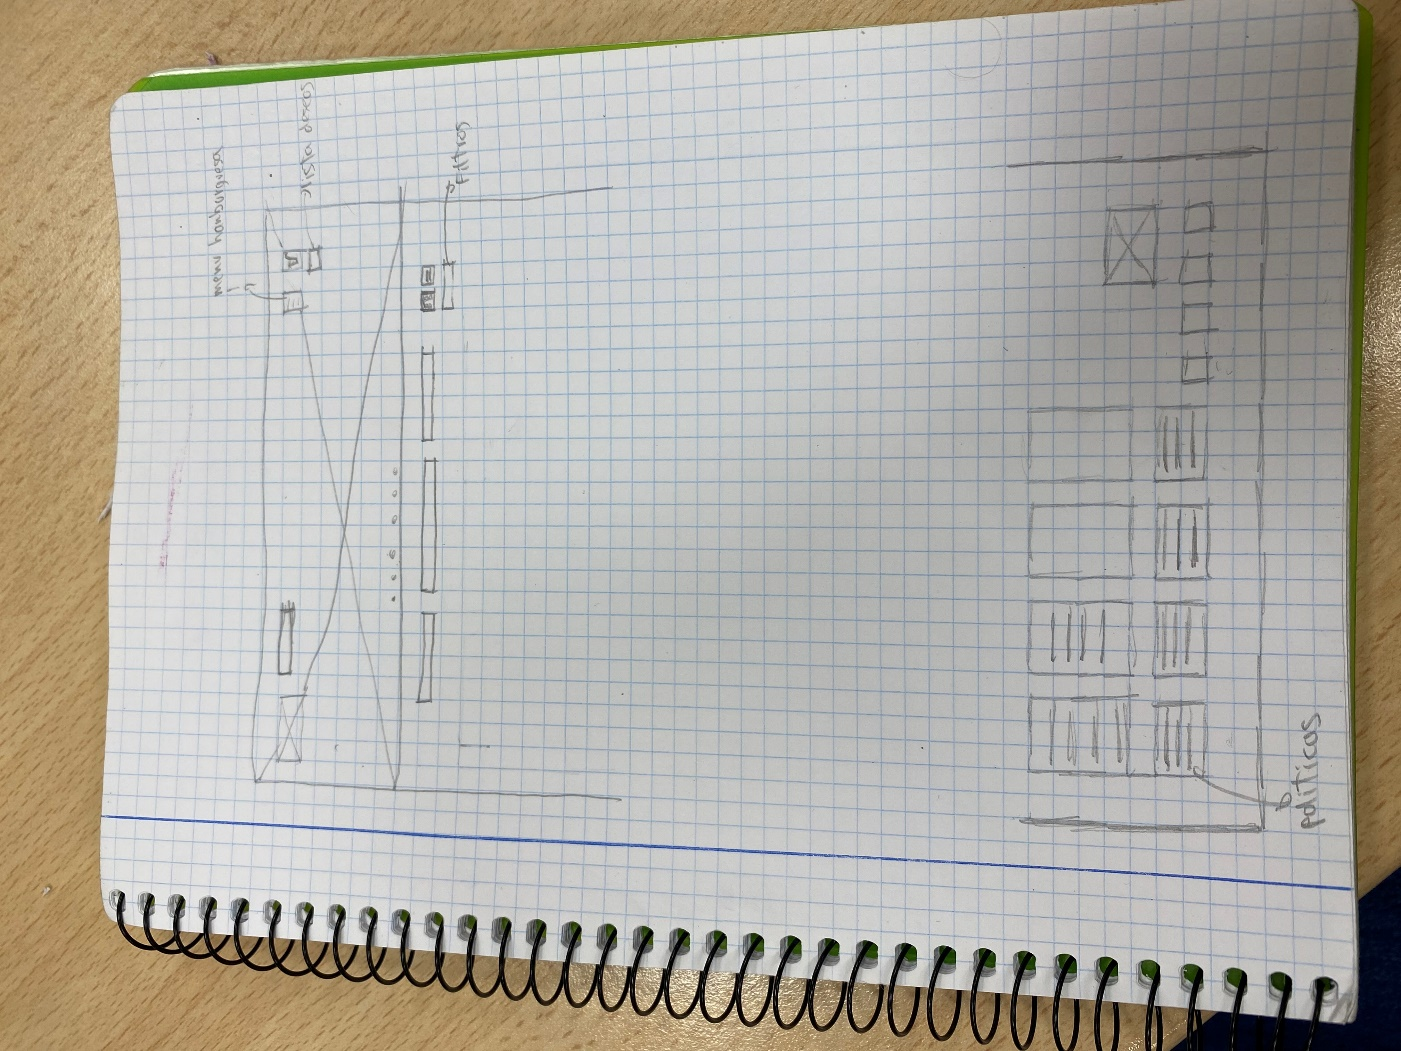 menu hamburguesa
lista deseos
Filtros
políticos